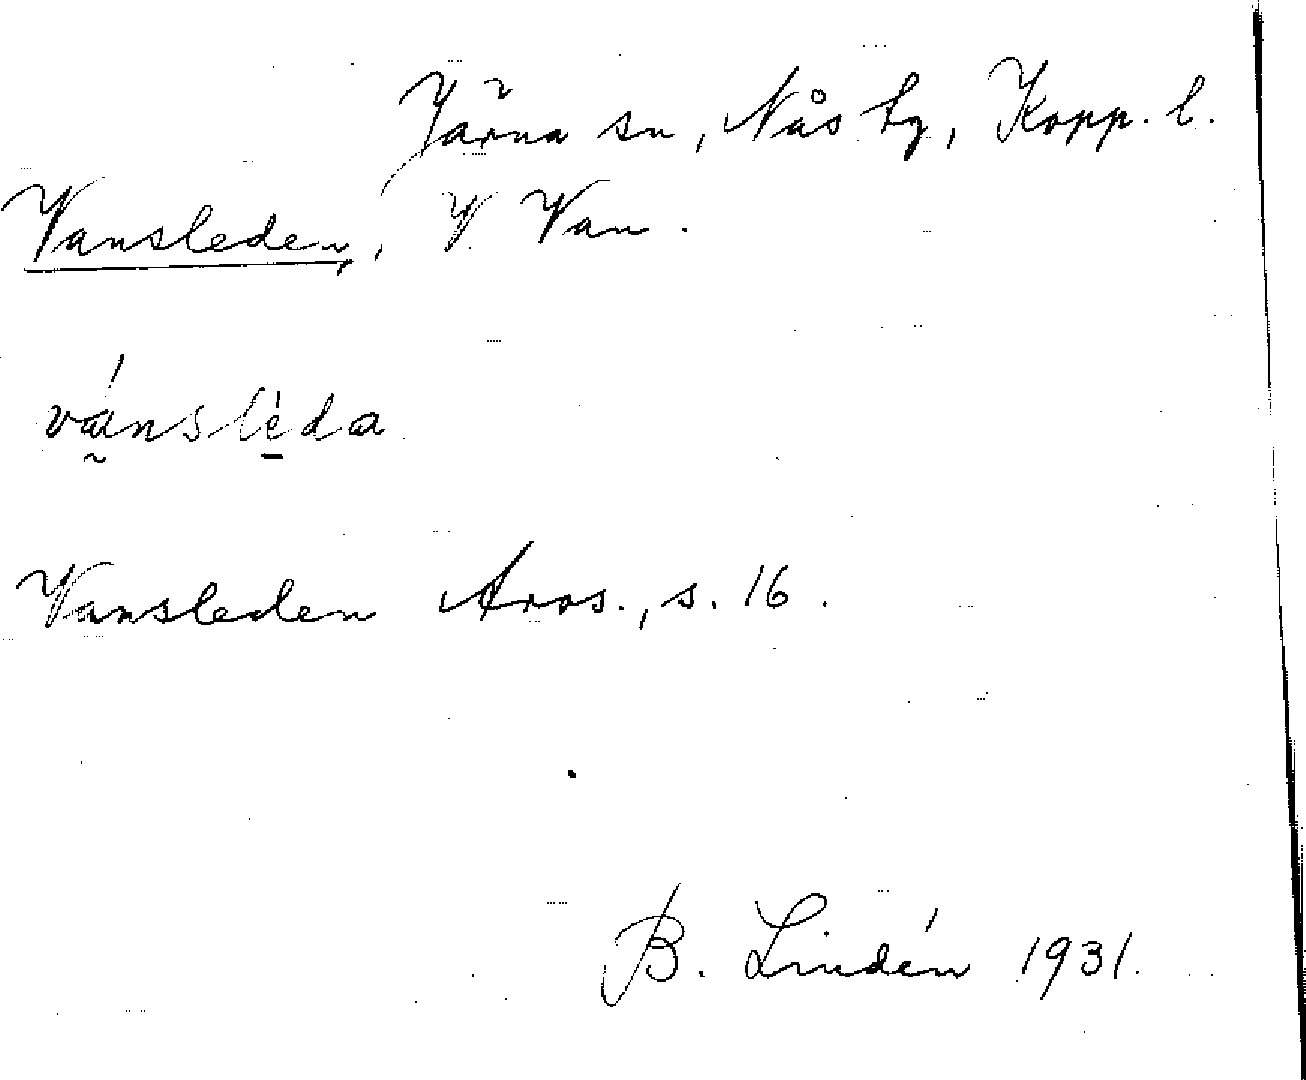 Järna sn, Nås tg, Kopp. l.
Vansleden, V Van.
vánslèda
Vansleden Aros., s. 16.
B. Lindén 1931.